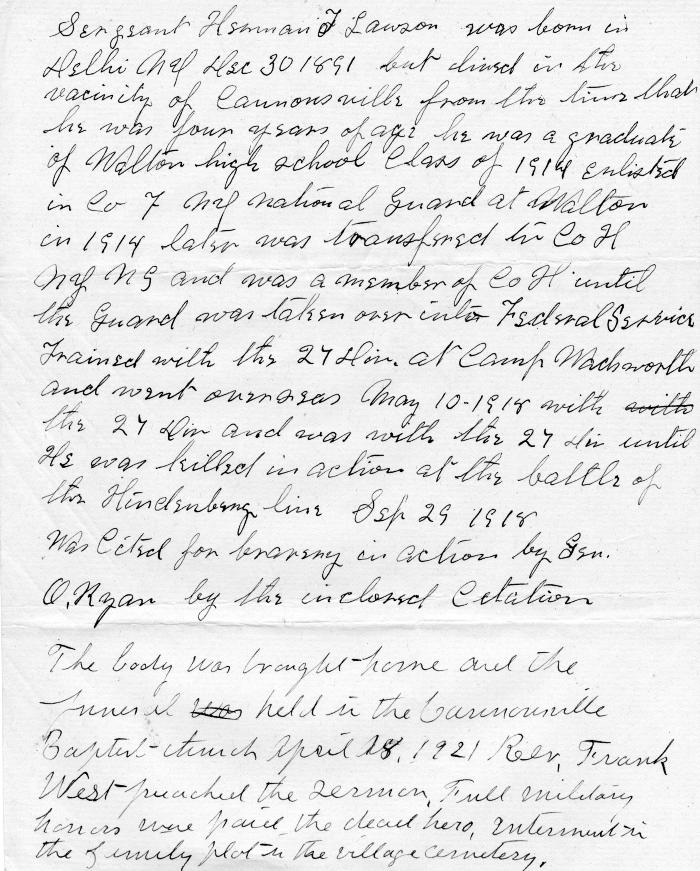 Sergeant Herman F Lawson was born in
Delhi NY Dec 30 1891 but lived in the
vacinity of Cannonsville from the time that
he was four years of age he was a graduate
of Walton high school Class of 1914 enlisted
in Co F NY national Guard at Walton
in 1914 later was transfered to Co H
NY NG and was a member of Co H until
the Guard was taken over into Federal Service
Trained with the 27 Div. at Camp Wadsworth
and went overseas May 10-1918 with with
the 27 Div and was with the 27 Div until
He was killed in action at the battle of
the Hindenberg line Sep 29 1918
Was Cited for bravery in action by Gen.
O,Ryan by the inclosed Citation
The body was brought home and the
funeral was held in the Cannonsville
Baptist church April 28, 1921 Rev, Frank
West preached the sermon, Full military
honors were paid the dead hero, Interment in
the family plot in the village cemetery.